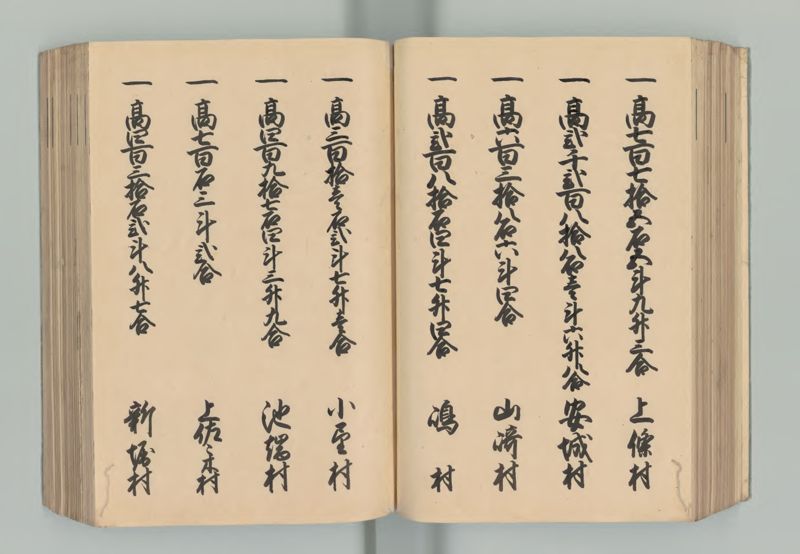 一高七百七拾五石五斗九升三合 上條村
一高弐千弐百八拾八石壱斗六升八合 安城村
一高六百三拾八石六斗四合 山﨑村
一高弐百八拾石四斗七升四合 嶋村
一高三百拾壱石弐斗七升壱合 小里村
一高四百九拾七石四斗三升九合 池端村
一高七百石三斗弐合 上佐々木村
一高四百三拾石弐斗八升七合 新堀村